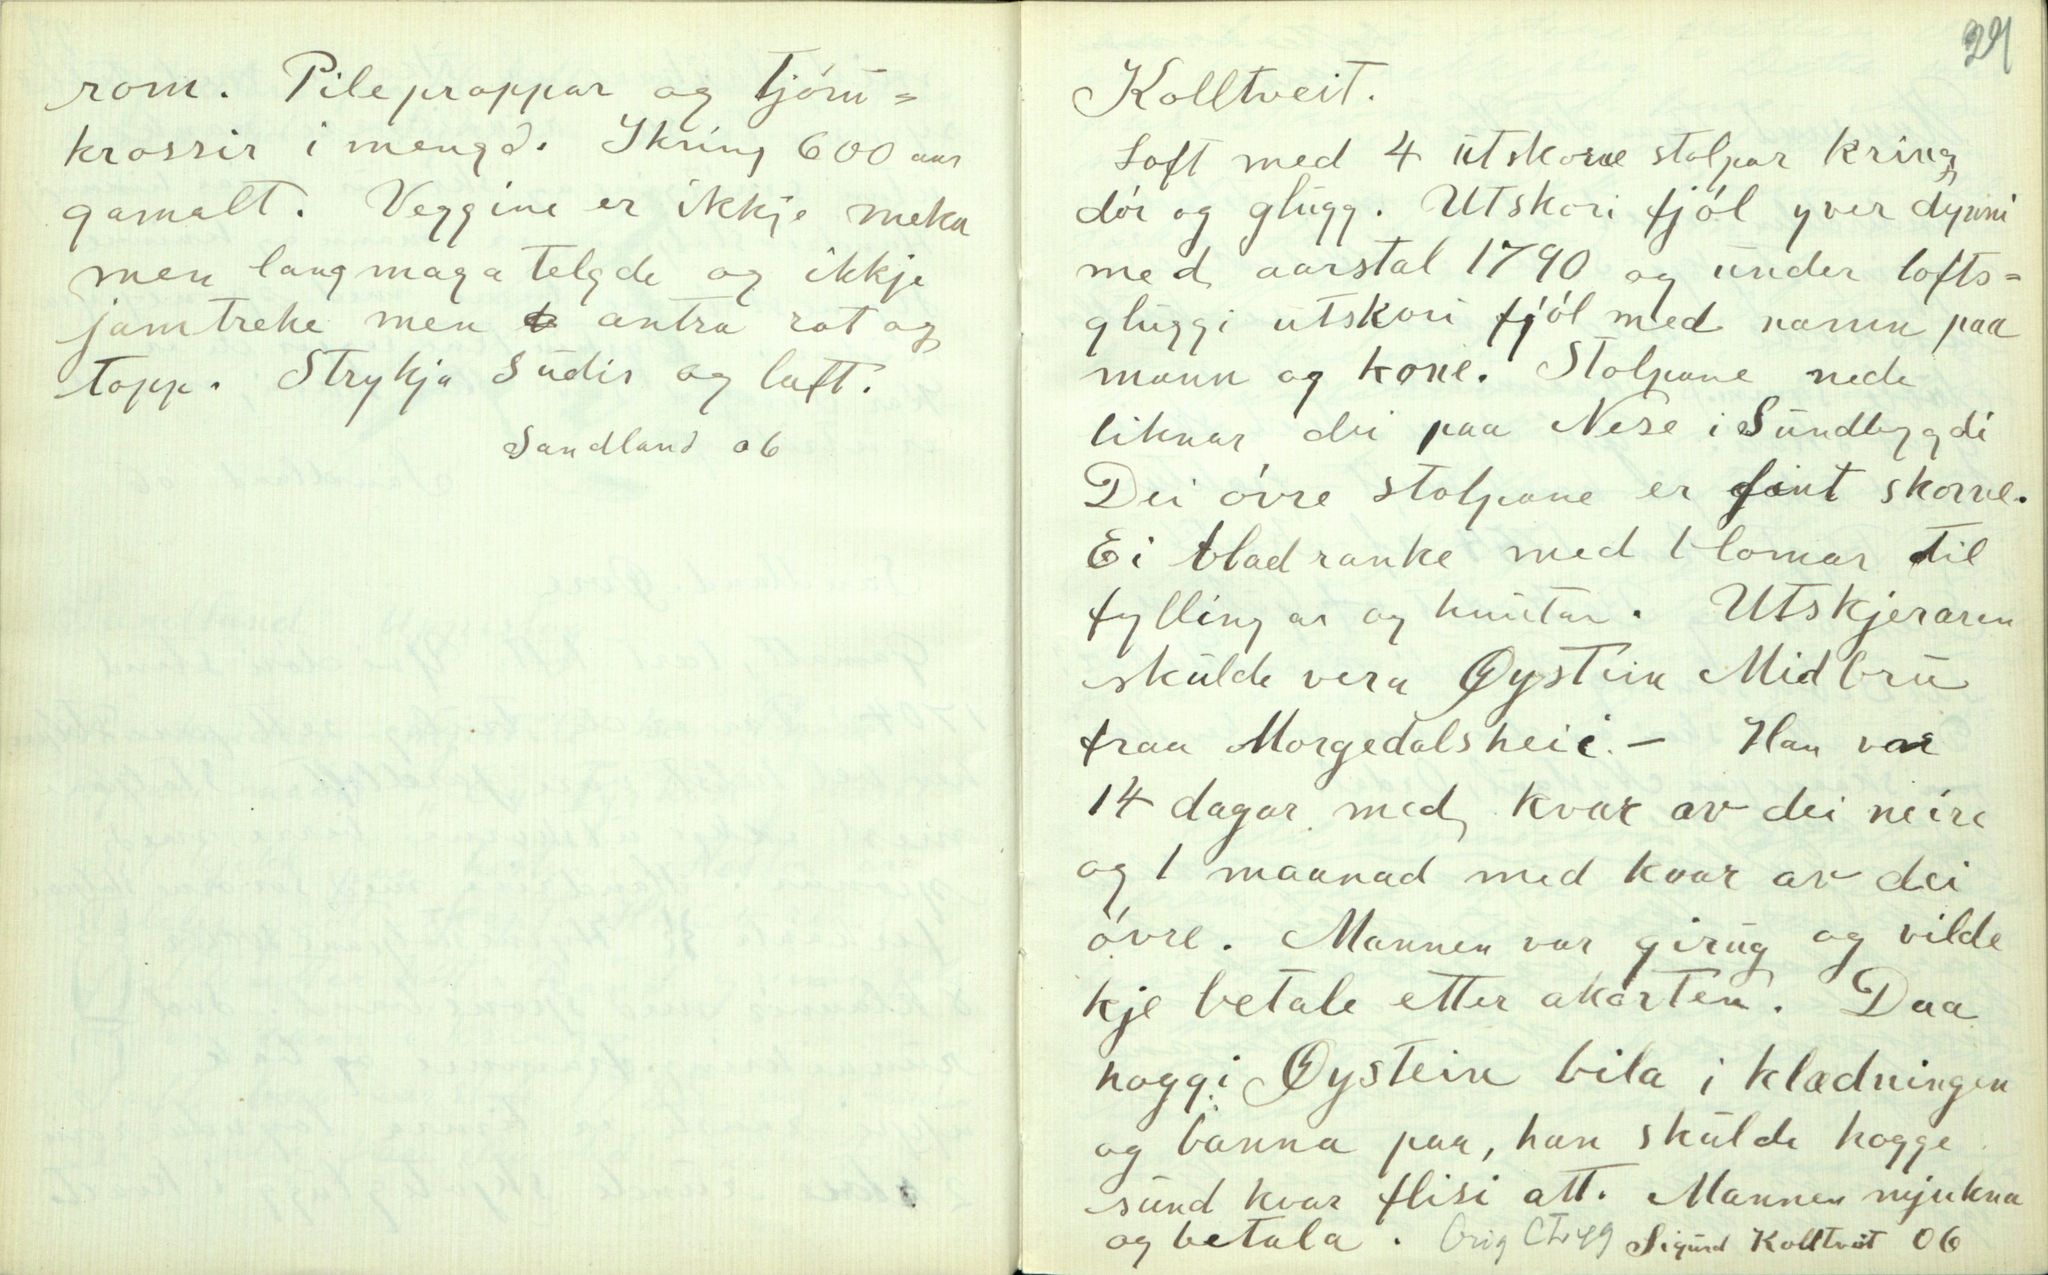 rom. Pileproppar og tjóru-
krossir i mengd. Ikring 600 aar
gamalt. Veggine er ikkje meka
men langmaga telgde og ikkje
jamtreke men antra rot og
topp. Strykja sudis og luft.
Sandland 06
24
Kolltveit.
Loft med 4 utskorne stolpar kring
dór og glugg. Utskori fjól yver dynni
med aarstal 1790 og under lofts-
gluggi utskori fjól med namn paa
mann og kone. Stolpane nede
liknar dei paa Nese i Sundbygdi
Dei óvre stolpane er fint skorne.
Ei bladranke med blomar til
fyllingar og huutar. Utskjeraren
skulde vera Øystein Midbru
fraa Morgedalsheii. - Han var
14 dagar med kvar av dei neire
og 1 maanad med kvar av dei
óvre. Mannen var girug og vilde
kje betale etter akorten. Daa
hoggi Øystein bila i klædningen
og banna paa, han skulde hogge
sund kvar flisi att. Mannen mjukna
og betala. Orig Sigurd Kolltveit 06